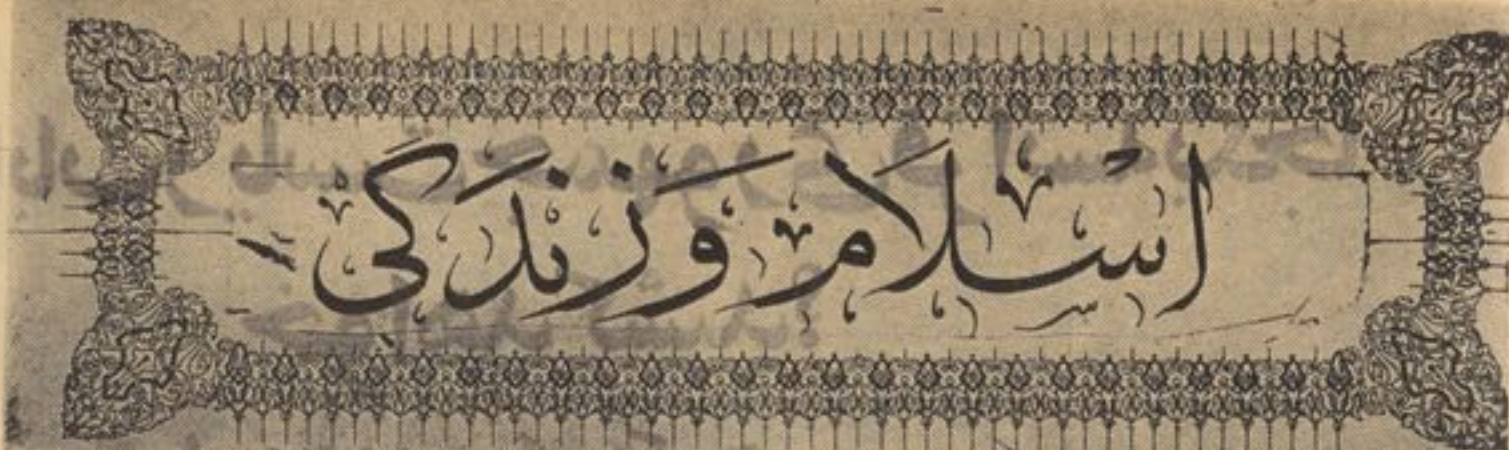 اسلام وَ زندَگی